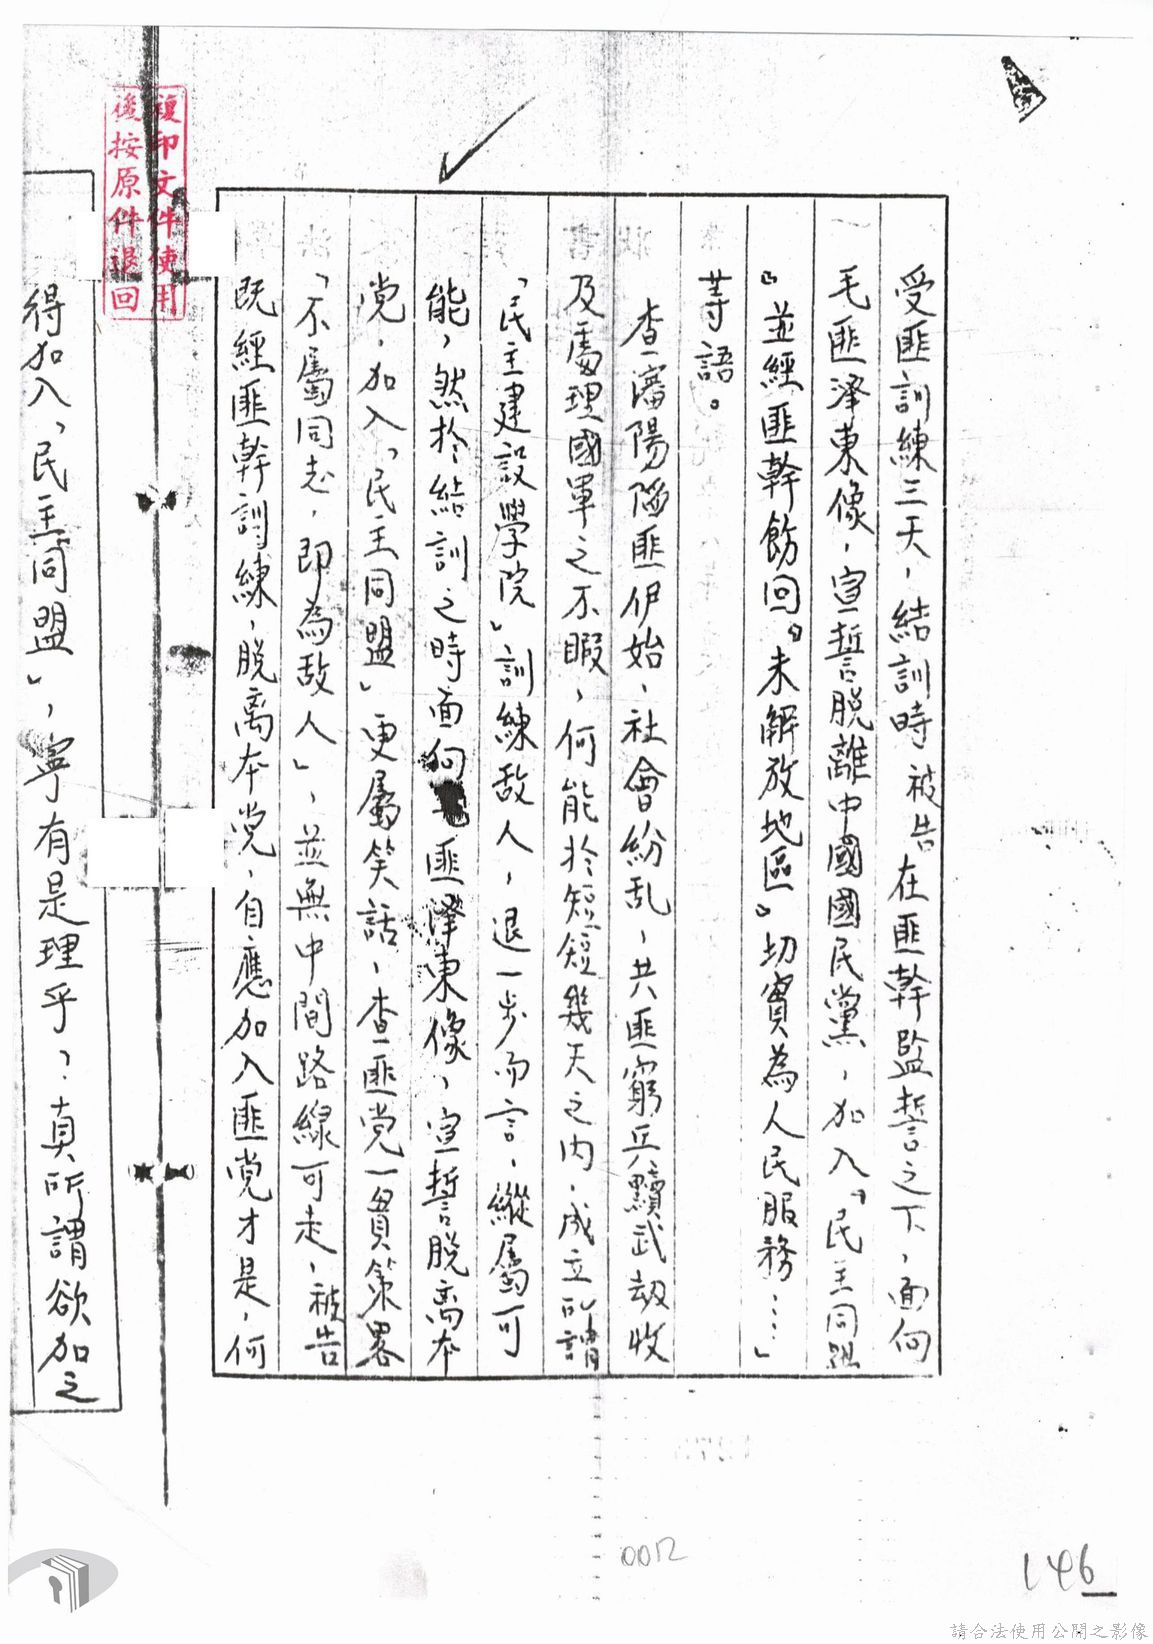 受匪訓練三天，結訓時被告在匪幹監誓之下，面向
毛匪澤東像，宣誓脱離中國國民黨，加入「民主同盟
』並經匪幹飭回『未解放地區』切實為人民服務……」
等語。
查瀋陽陷匪伊始，社會紛乱，共匪窮兵黷武劫收
及處理國軍之不暇，何能於短短幾天之内，成立所謂
「民主建設學院」訓練敌人，退一步而言，縱屬可
能，然於結訓之時面向毛匪澤東像，宣誓脱离本
党，加入「民主同盟」更屬笑話，查匪党一貫策畧
「不屬同志，即為敌人」，並無中間路線可走，被告
既經匪幹訓練，脱离本党，自應加入匪党才是，何
得加入「民主同盟」，寧有是理乎？真所謂欲加之
複印文件使用
後按原件退回
0012
146
請合法使用公開之影像